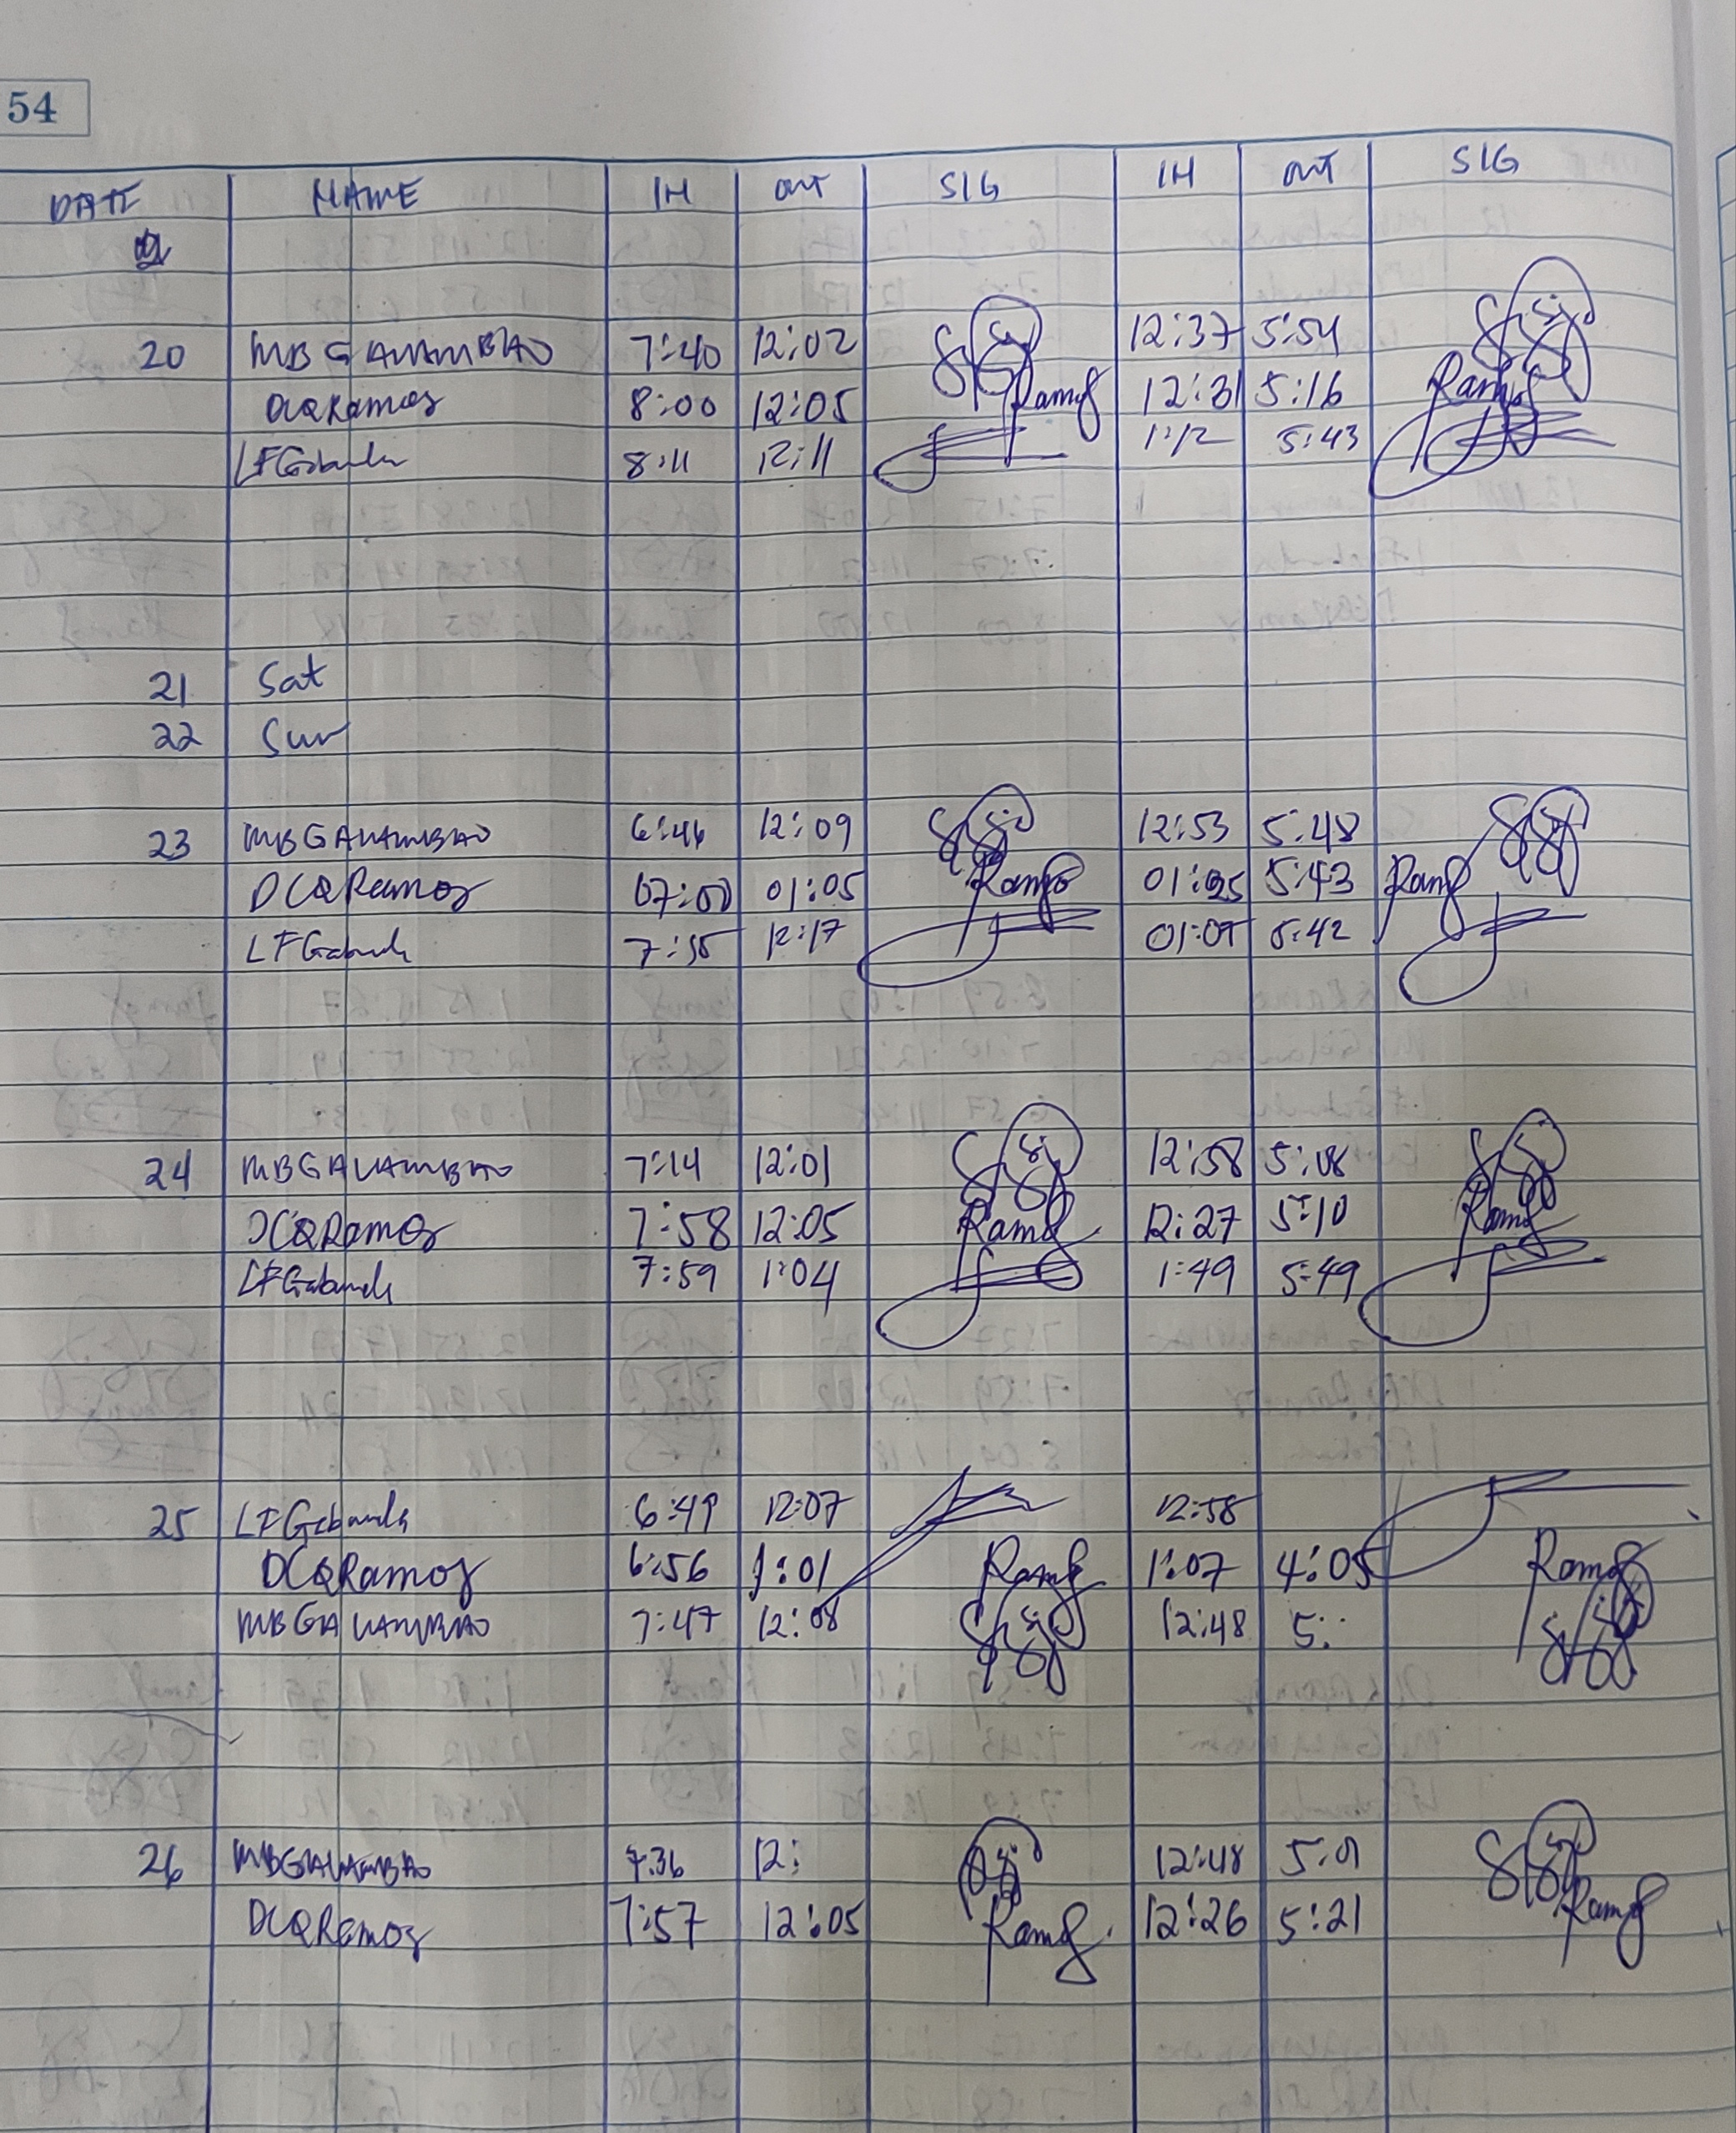 54
DATE NAME IN OUT SIG IN OUT SIG
20 MBGALAMBAO 7:40 12:02 12:37 5:54
DCQRamos 8:00 12:05 Ramos 12:31 5:16 Ramos
LFGabanda 8:11 12:11 1:12 5:43
21 Sat
22 Sun
23 MBGALAMBAO 6:46 12:09 12:53 5:48
DCQRamos 07:00 01:05 Ramos 5:43 Ramos
LFGabanda 12:17 01:07 5:42
24 MBGALAMBAO 7:14 12:01 12:58 5:08
DCQRamos 7:58 12:05 Ramos 12:27 5:10 Ramos
LFGabanda 7:59 1:04 1:49 5:49
25 LFGabanda 6:49 12:07 12:58
DCQRamos 6:56 1:01 Ramos 1:07 4:05 Ramos
MBGALAMBAO 7:47 12:08 12:48 5:
26 MBGALAMBAO 7:36 12: 12:48 5:01
DCQRamos 7:57 12:05 Ramos 12:26 5:21 Ramos